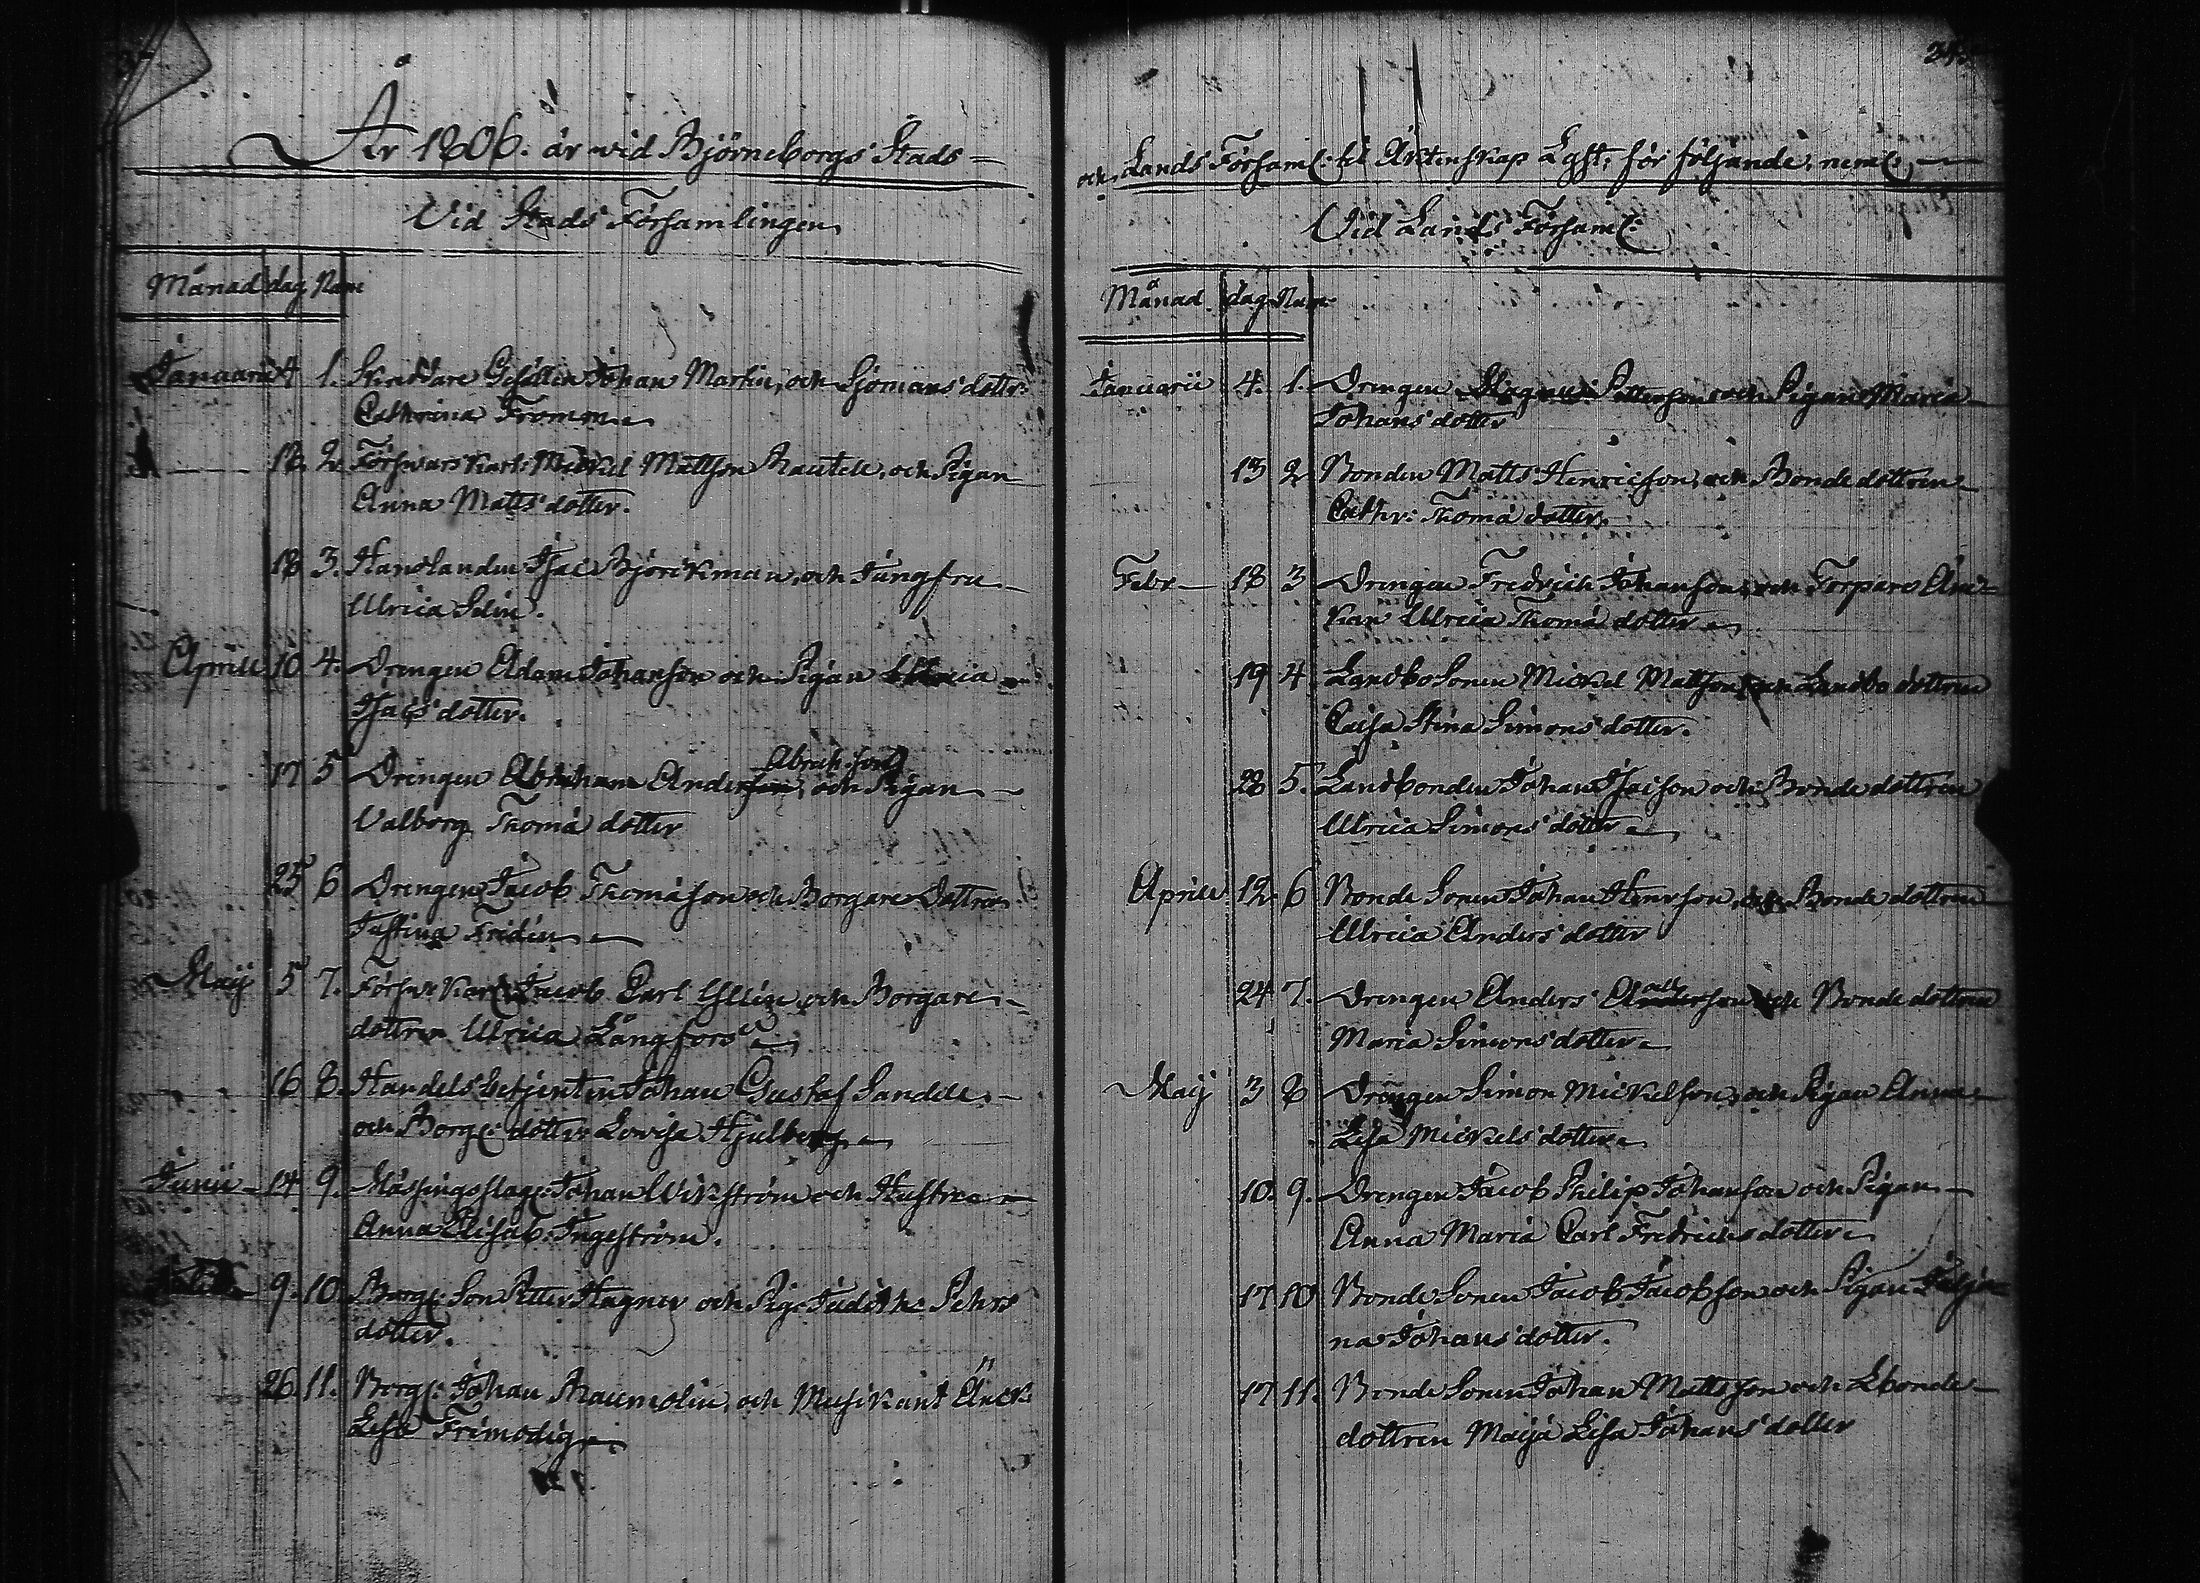 År 1806. är vid Björneborgs Stads=
Vid Stads Församlingen
Månad dag Num
Januarii 4 1. Skräddare Gesällen Johan Martin, och Sjömans dottr:
Cathrina Fromm
18. 2. Försvars Karl: Mickel Mattson Rautell, och Pigan
Anna Matts dotter.
18 3. Handlanden Isac Björckman, och Jungfru
Ulrica Selin.
Aprill 10 4. Drengen Adam Johanson och Pigan Ulrica
Isacs dotter.
17 5 Drengen Abraham Anderson, Abrah: son och Pigan
Valborg Thomä dotter
25 6 Drengen Jacob Thomäson och Borgare Dottren
Justina Fridén
Maij 5 7. Försvs Karl Jacob Carl Gllén och Borgare
dottren Ulrica Långfors
16 8. Handels betjenten Johan Gustaf Sandell
och Borg: dottr: Lovisa Hjulberg
Junii 14 9. Mässingsslag: Johan Wikström och Hustru
Anna Elisab: Tingström.
9. 10. Borg: Son Petter Hagner och Pig: Judith Pehrs
dotter.
26. 11. Borg: Johan Raumolin, och Musikant Änck:
Lisa Frimodig
och Lands Församl: til Äktenskap Lyst, för följande, neml:
Vid Lands Församl:
Månad dag Num
Januarii 4. 1. Drengen Magnus Petterson och Pigan Maria
Johans dotter
13 2 Bonden Matts Henricson, och Bonde dottren
Cathr: Thomä dotter.
Febr 18 3 Drengen Fredrich Johanson, och Torpare Än=
kan Ulrica Thomä dotter
19 4 Landbo Sonen Mickel Mattson och Landbo dottren
Caisa Stina Simons dotter.
22 5. Landbonden Johan Isacson och Bonde dottren
Ulrica Simons dotter
Aprill 12. 6 Bonde Sonen Johan Henrson, och Bonde dottren
Ulrica Anders dotter
24 7. Drengen Anders Anderson och Bonde dottren
Maria Simons dotter
Maij 3 8 Drengen Simon Mickelson, och Pigan Anna
Lisa Mickels dotter
10. 9. Drengen Jacob Philip Johanson och Pigan
Anna Maria Carl Fredrichs dotter
17 10 Bonde Sonen Jacob Jacobson och Pigan
na Johans dotter.
17 11. Bonde Sonen Johan Mattsson och Lbonde
dottren Maija Lisa Johans dotter